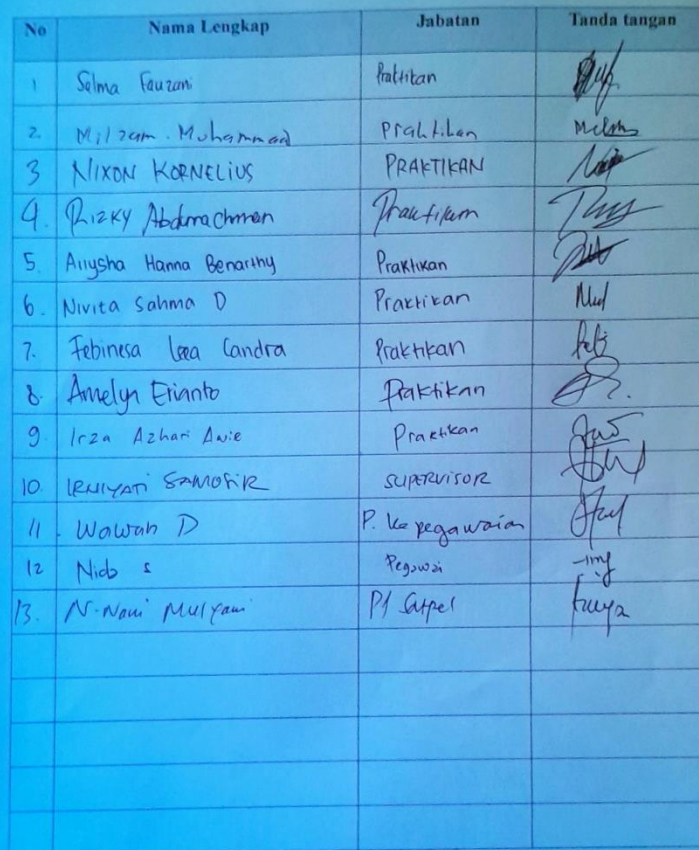 No Nama Lengkap Jabatan Tanda tangan
1 Salma Fauzani Praktikan
2. Milzam Muhammad Praktikan
3 NIXON KORNELIUS PRAKTIKAN
4. RIZKY Abdurrachman Praktikum
5. Allysha Hanna Benarthy Praktikan
6. Nivita Sahma D Praktikan
7. Febinesa Lea Candra Praktikan
8. Amelyn Erianto Praktikan
9. Irza Azhari Awie Praktikan
10. IRNIYATI SAMOSIR SUPERVISOR
11. Wawan D P. Kepegawaian
12 Nido s Pegawai
13. N. Nani Mulyani Pj Satpel